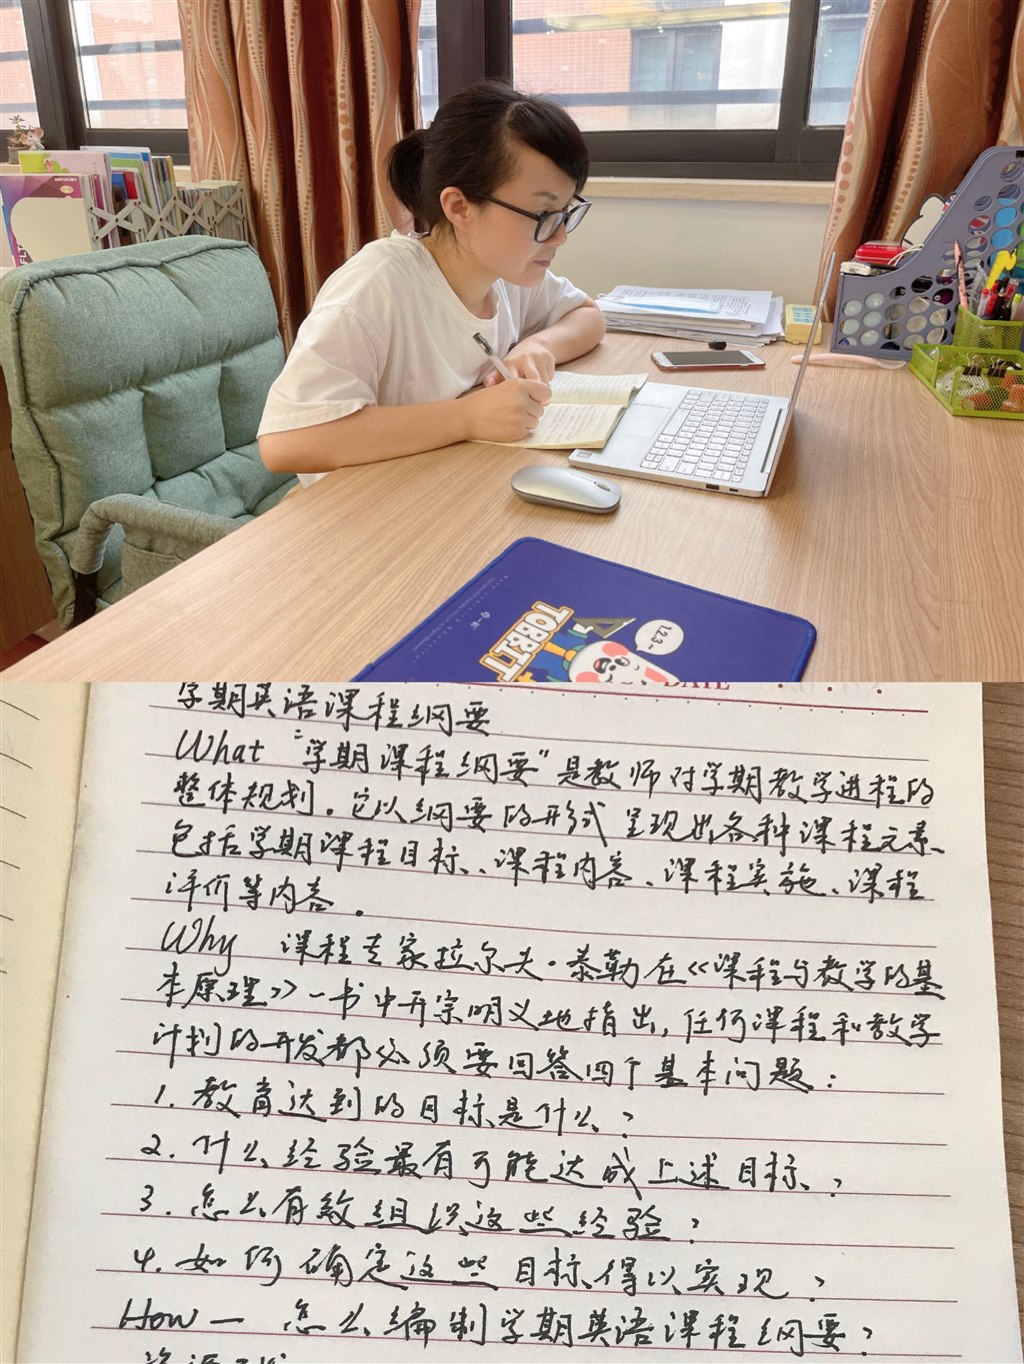 TOBBIT
123~
DATE
学期英语课程纲要
What "学期课程纲要"是教师对学期教学进程的
整体规划。它以纲要的形式呈现出各种课程元素、
包括学期课程目标、课程内容、课程实施、课程
评价等内容。
Why 课程专家拉尔夫·泰勒在《课程与教学的基
本原理》一书中开宗明义地指出,任何课程和教学
计划的开发都必须要回答四个基本问题:
1. 教育达到的目标是什么?
2. 什么经验最有可能达成上述目标?
3. 怎么有效组织这些经验?
4. 如何确定这些目标得以实现?
How — 怎么编制学期英语课程纲要?